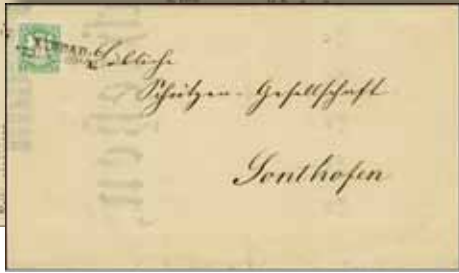 Löbliche
Schützen-Gesellschaft
Sonthofen